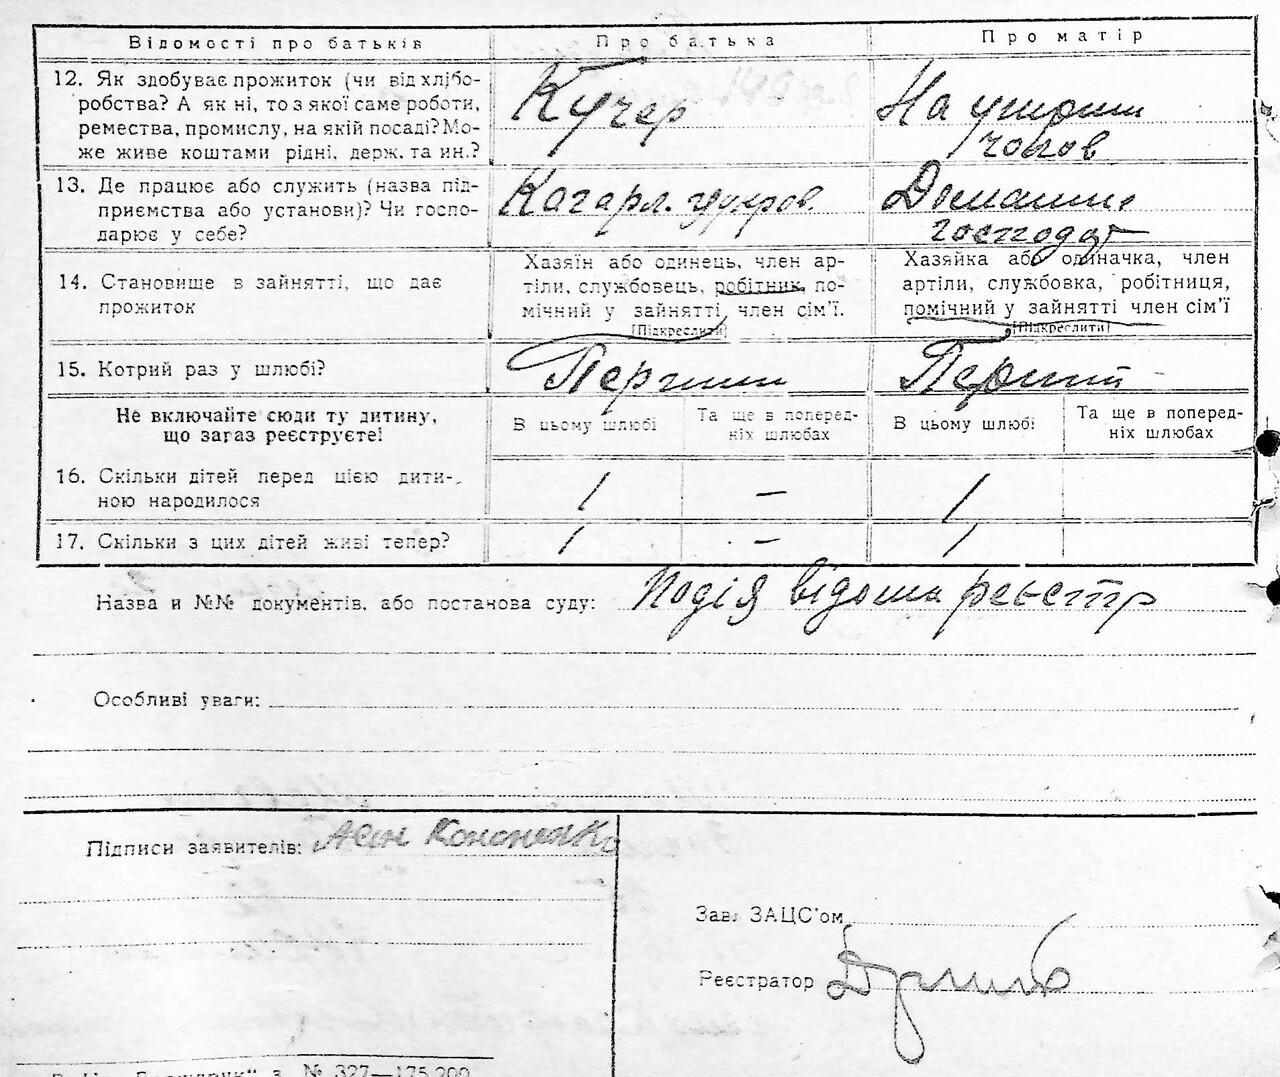 Відомості про батьків Про батька Про матір
12. Як здобуває прожиток (чи від хлібо-
робства? А як ні, то з якої саме роботи,
ремества, промислу, на якій посаді? Мо-
же живе коштами рідні, держ. та ин.?
Кучер
На утриман
чолов
13. Де працює або служить (назва під-
приємства або установи)? Чи госпо-
дарює у себе?
Кагарл. цукров.
Домашне
господар
14. Становище в зайнятті, що дає
прожиток
Хазяїн або одинець, член ар-
тіли, службовець, робітник, по-
мічний у зайнятті член сім'ї.
[Підкреслити]
Хазяйка або одиначка, член
артіли, службовка, робітниця,
помічний у зайнятті член сім'ї
[Підкреслити]
15. Котрий раз у шлюбі? Перший Перший
Не включайте сюди ту дитину,
що загаз реєструєте!
В цьому шлюбі
Та ще в поперед-
ніх шлюбах
В цьому шлюбі
Та ще в поперед-
ніх шлюбах
16. Скільки дітей перед цією дити-
ною народилося
1 – 1
17. Скільки з цих дітей живі тепер? 1 – 1
Назва и №№ документів, або постанова суду: Подія відома реєстр
Особливі уваги:
Підписи заявителів: Кононенко
Зав. ЗАЦС'ом
Реєстратор
з. № 327—175.200